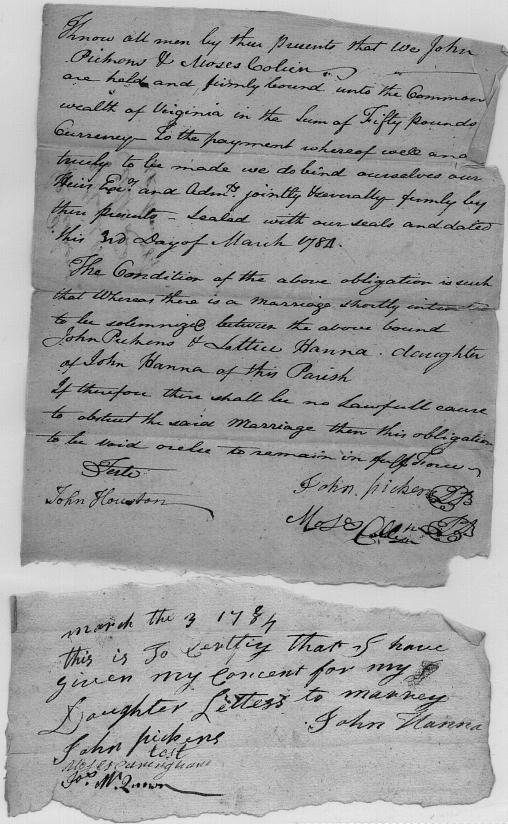 Know all men by these Presents that We John
Pickens & Moses Colier
are held and firmly bound unto the Common
wealth of Virginia in the Sum of Fifty Pounds
Currency To the payment whereof well and
truely to be made we do bind ourselves our
Heirs Exrs and Admrs jointly & severally firmly by
these presents - Sealed with our seals and dated
this 3rd Day of March 1784.
The Condition of the above obligation is such
that Whereas there is a marriage shortly intended
to be solemnized between the above bound
John Pickens & Lettice Hanna. daughter
of John Hanna of this Parish
If therefore there shall be no Lawfull cause
to obstruct the said Marriage then this obligation
to be void or else to remain in full Force
Teste
John Houston
John pickens
Moses
march the 3 1784
this is To Certify that I have
given my Concent for my
Daughter Letless to marrey
John Hanna
John pickens
test
Moses Cuningham
Jos Mc